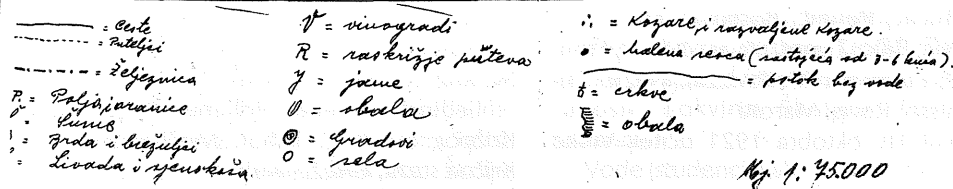 = Ceste
= Puteljci
= Željeznica
P. = Polja i oranice
Š = Šume
= Brda i brežuljci
= Livada i sjenokoša
V = vinogradi
R = raskrižje puteva
y = jame
O = obala
= Gradovi
O = sela
= Kozare, i razvaljene kozare.
= malena seoca (sastojeća od 3-6 kuća).
= potok bez vode
= crkve
= obala
Mj. 1:75.000